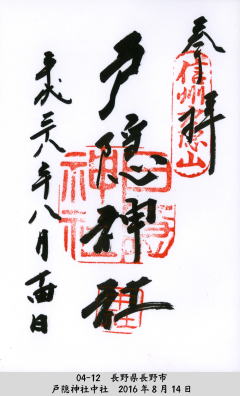 奉拝
信州戸隠山
戸隠神社
平成二八年八月十四日
04-12　長野県長野市
戸隠神社中社　2016年8月14日